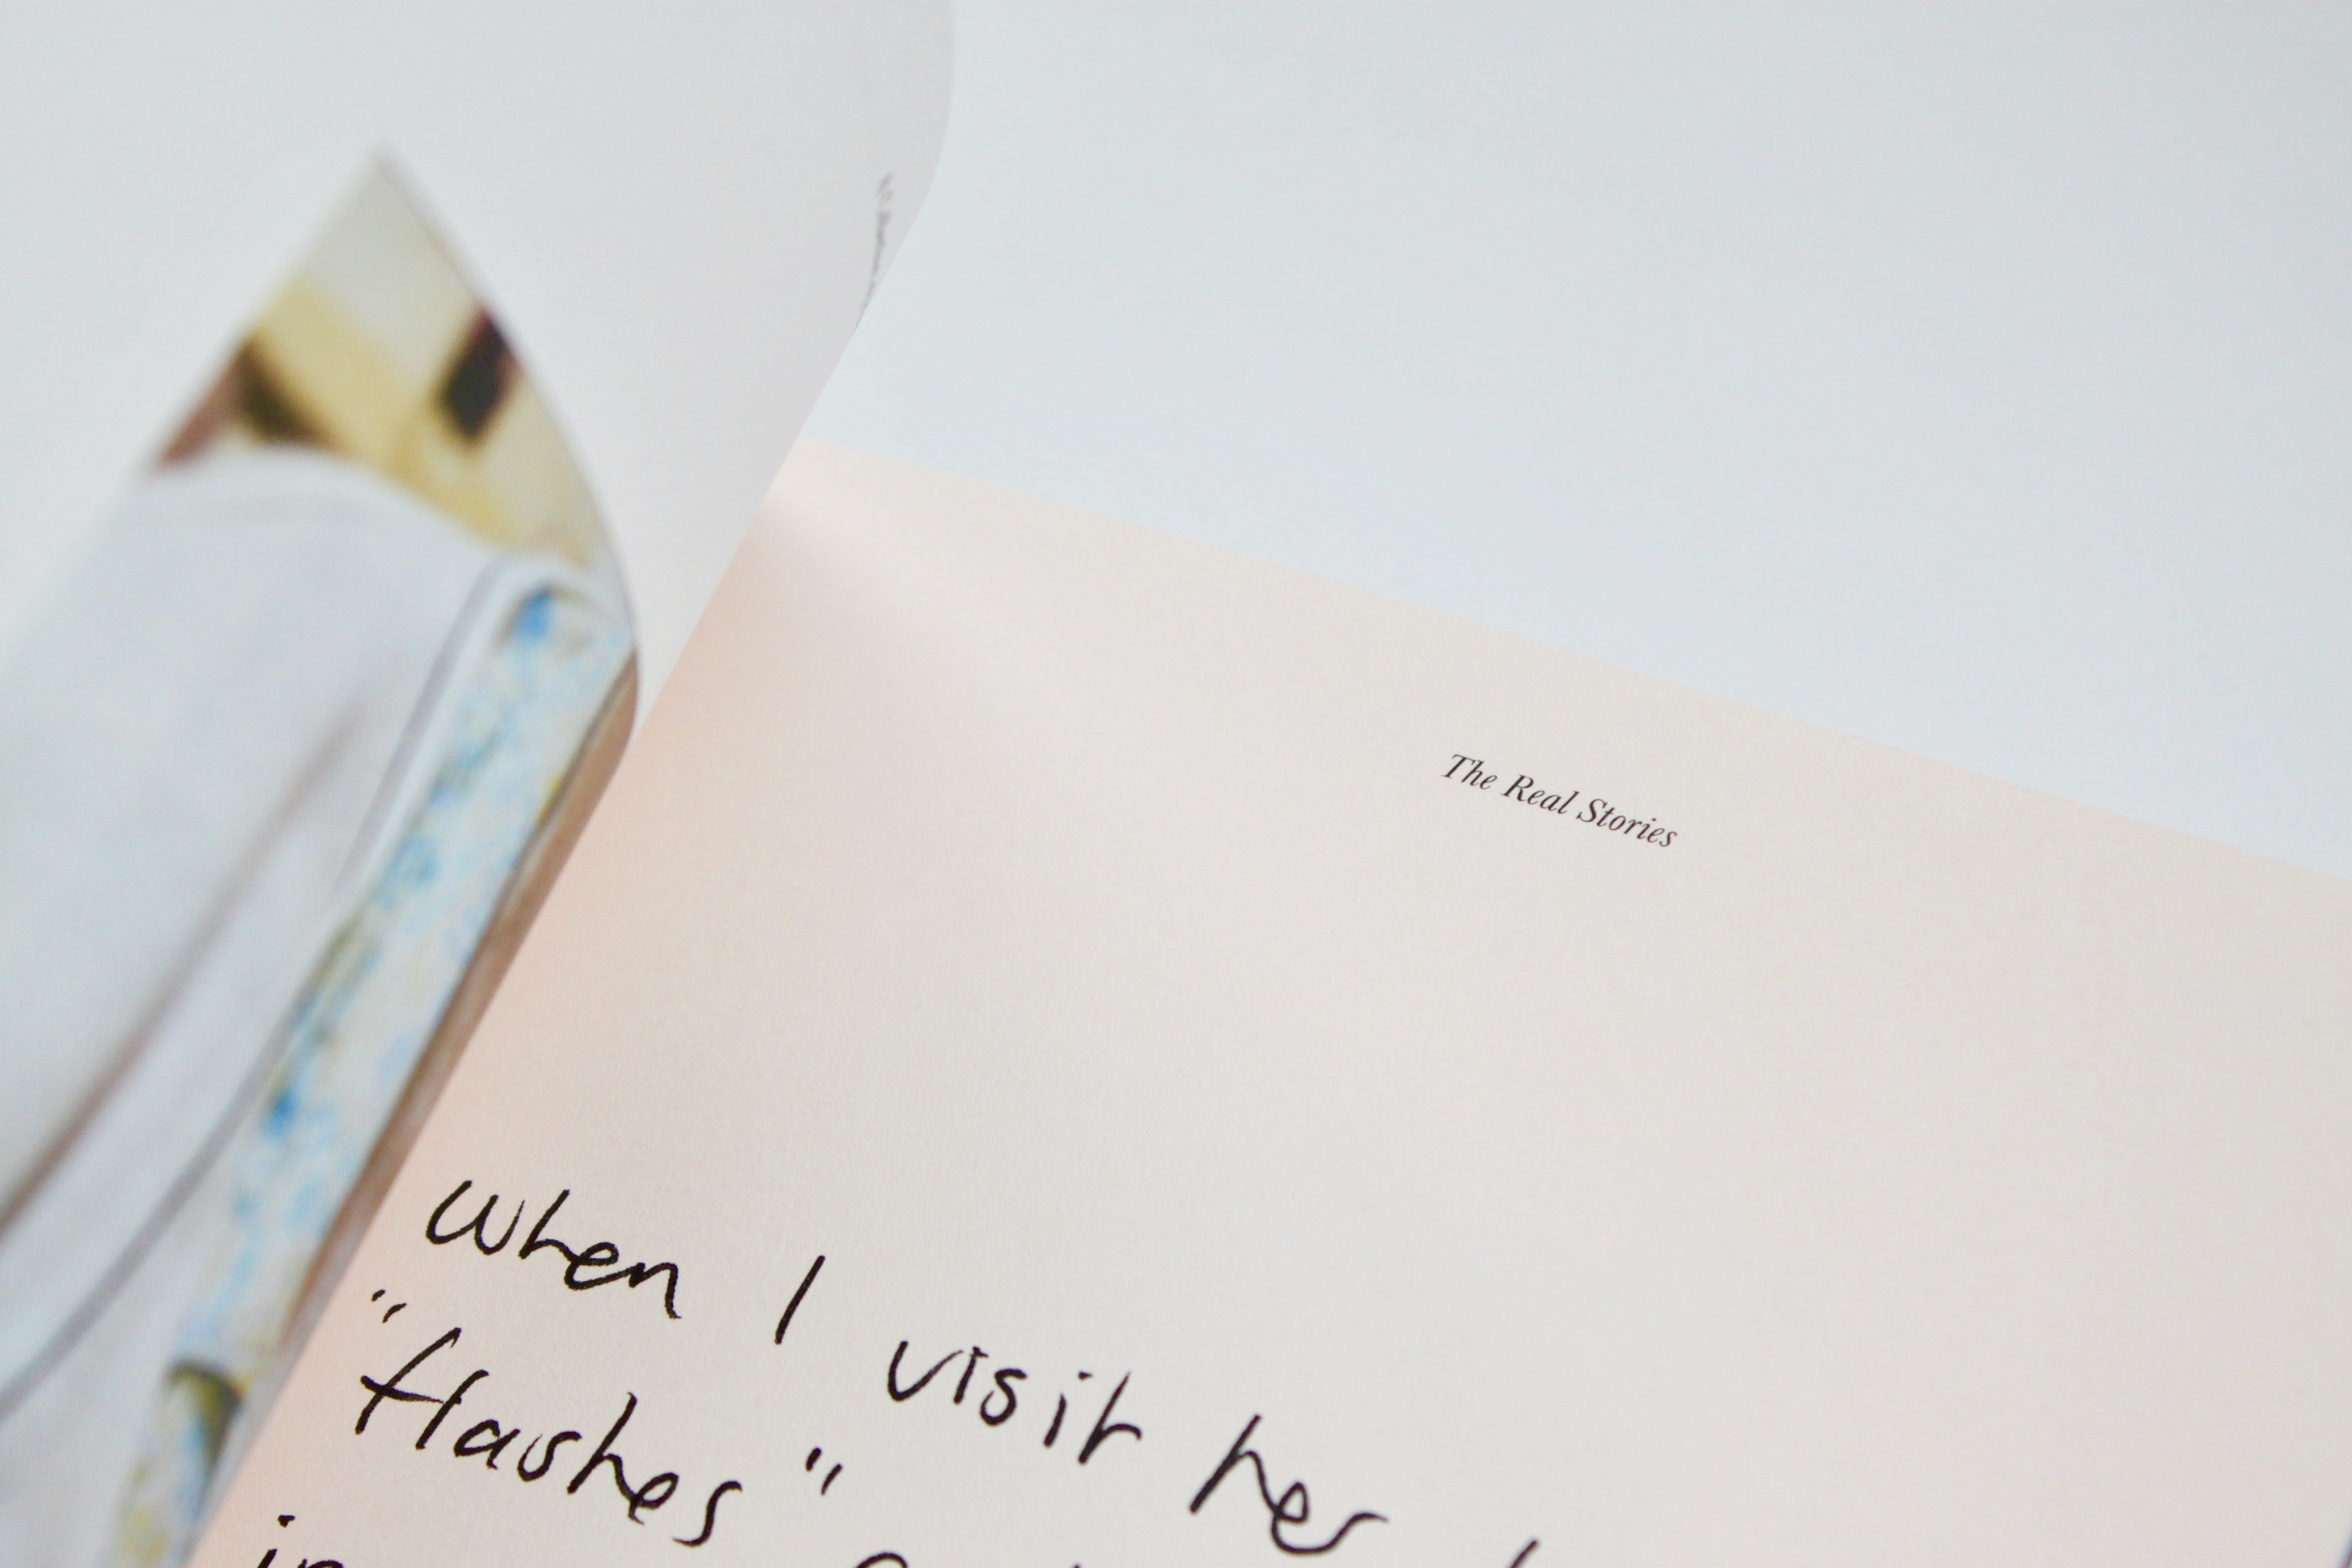 The Real Stories
When I visit her
"flashes"